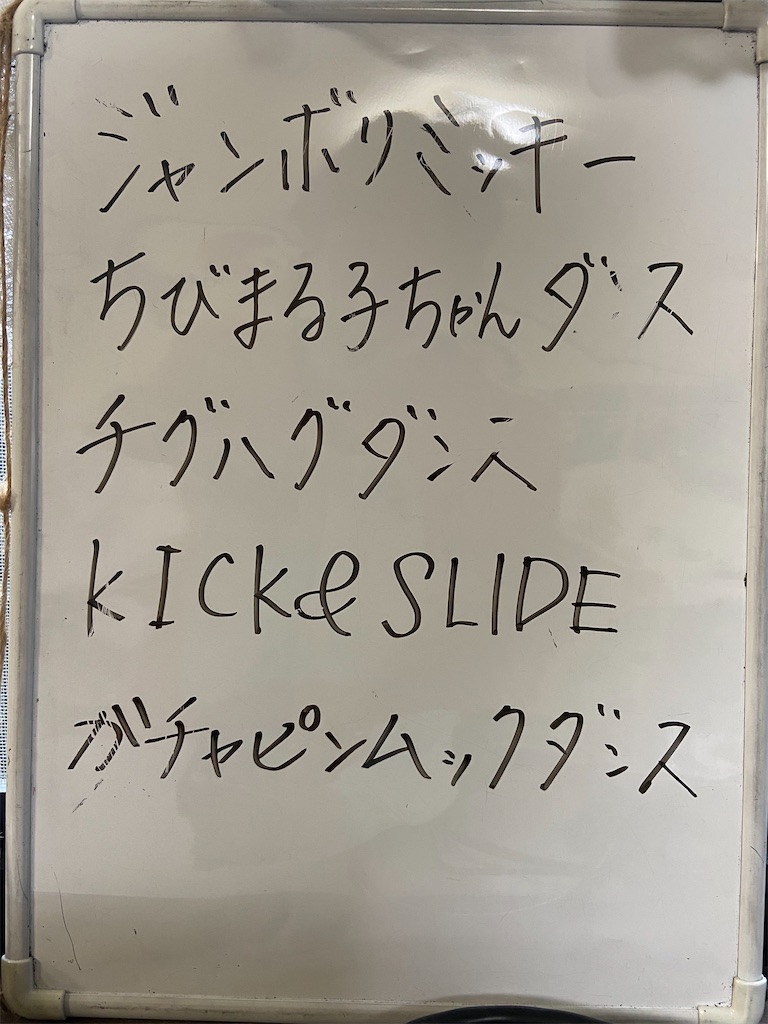 ジャンボリミッキー
ちびまる子ちゃんダンス
チグハグダンス
KICK&SLIDE
ガチャピンムックダンス